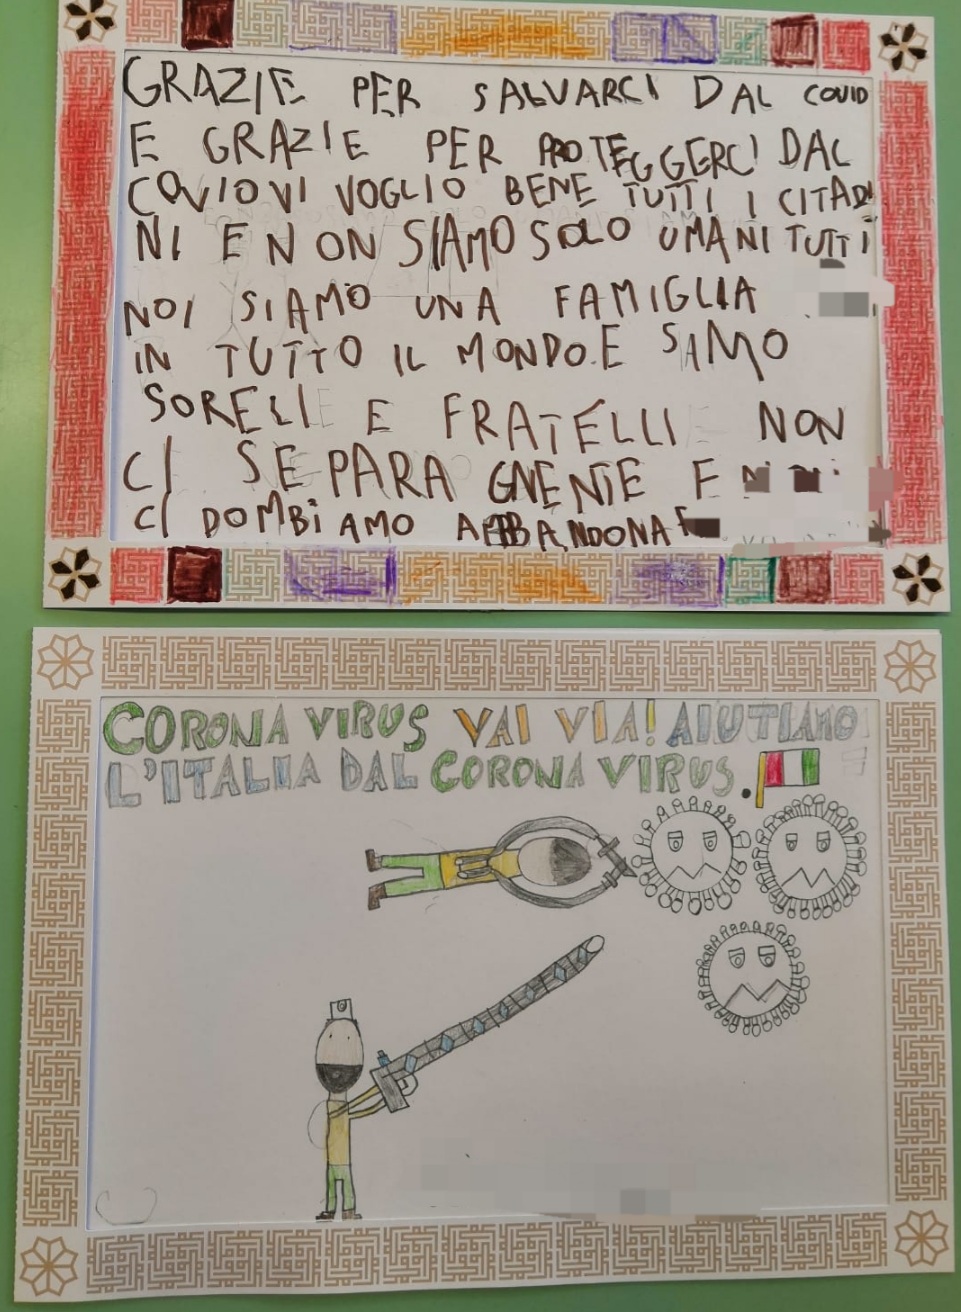 GRAZIE PER SALVARCI DAL COVID
E GRAZIE PER PROTEGGERCI DAL
COVIDVI VOGLIO BENE TUTTI I CITADI
NI E NON SIAMO SOLO UMANI TUTTI
NOI SIAMO UNA FAMIGLIA
IN TUTTO IL MONDO.E SIAMO
SORELLE E FRATELLI NON
CI SEPARA GNENTE E
CI DOMBIAMO ABBANDONA
CORONA VIRUS VAI VIA! AIUTIAMO
L'ITALIA DAL CORONA VIRUS.